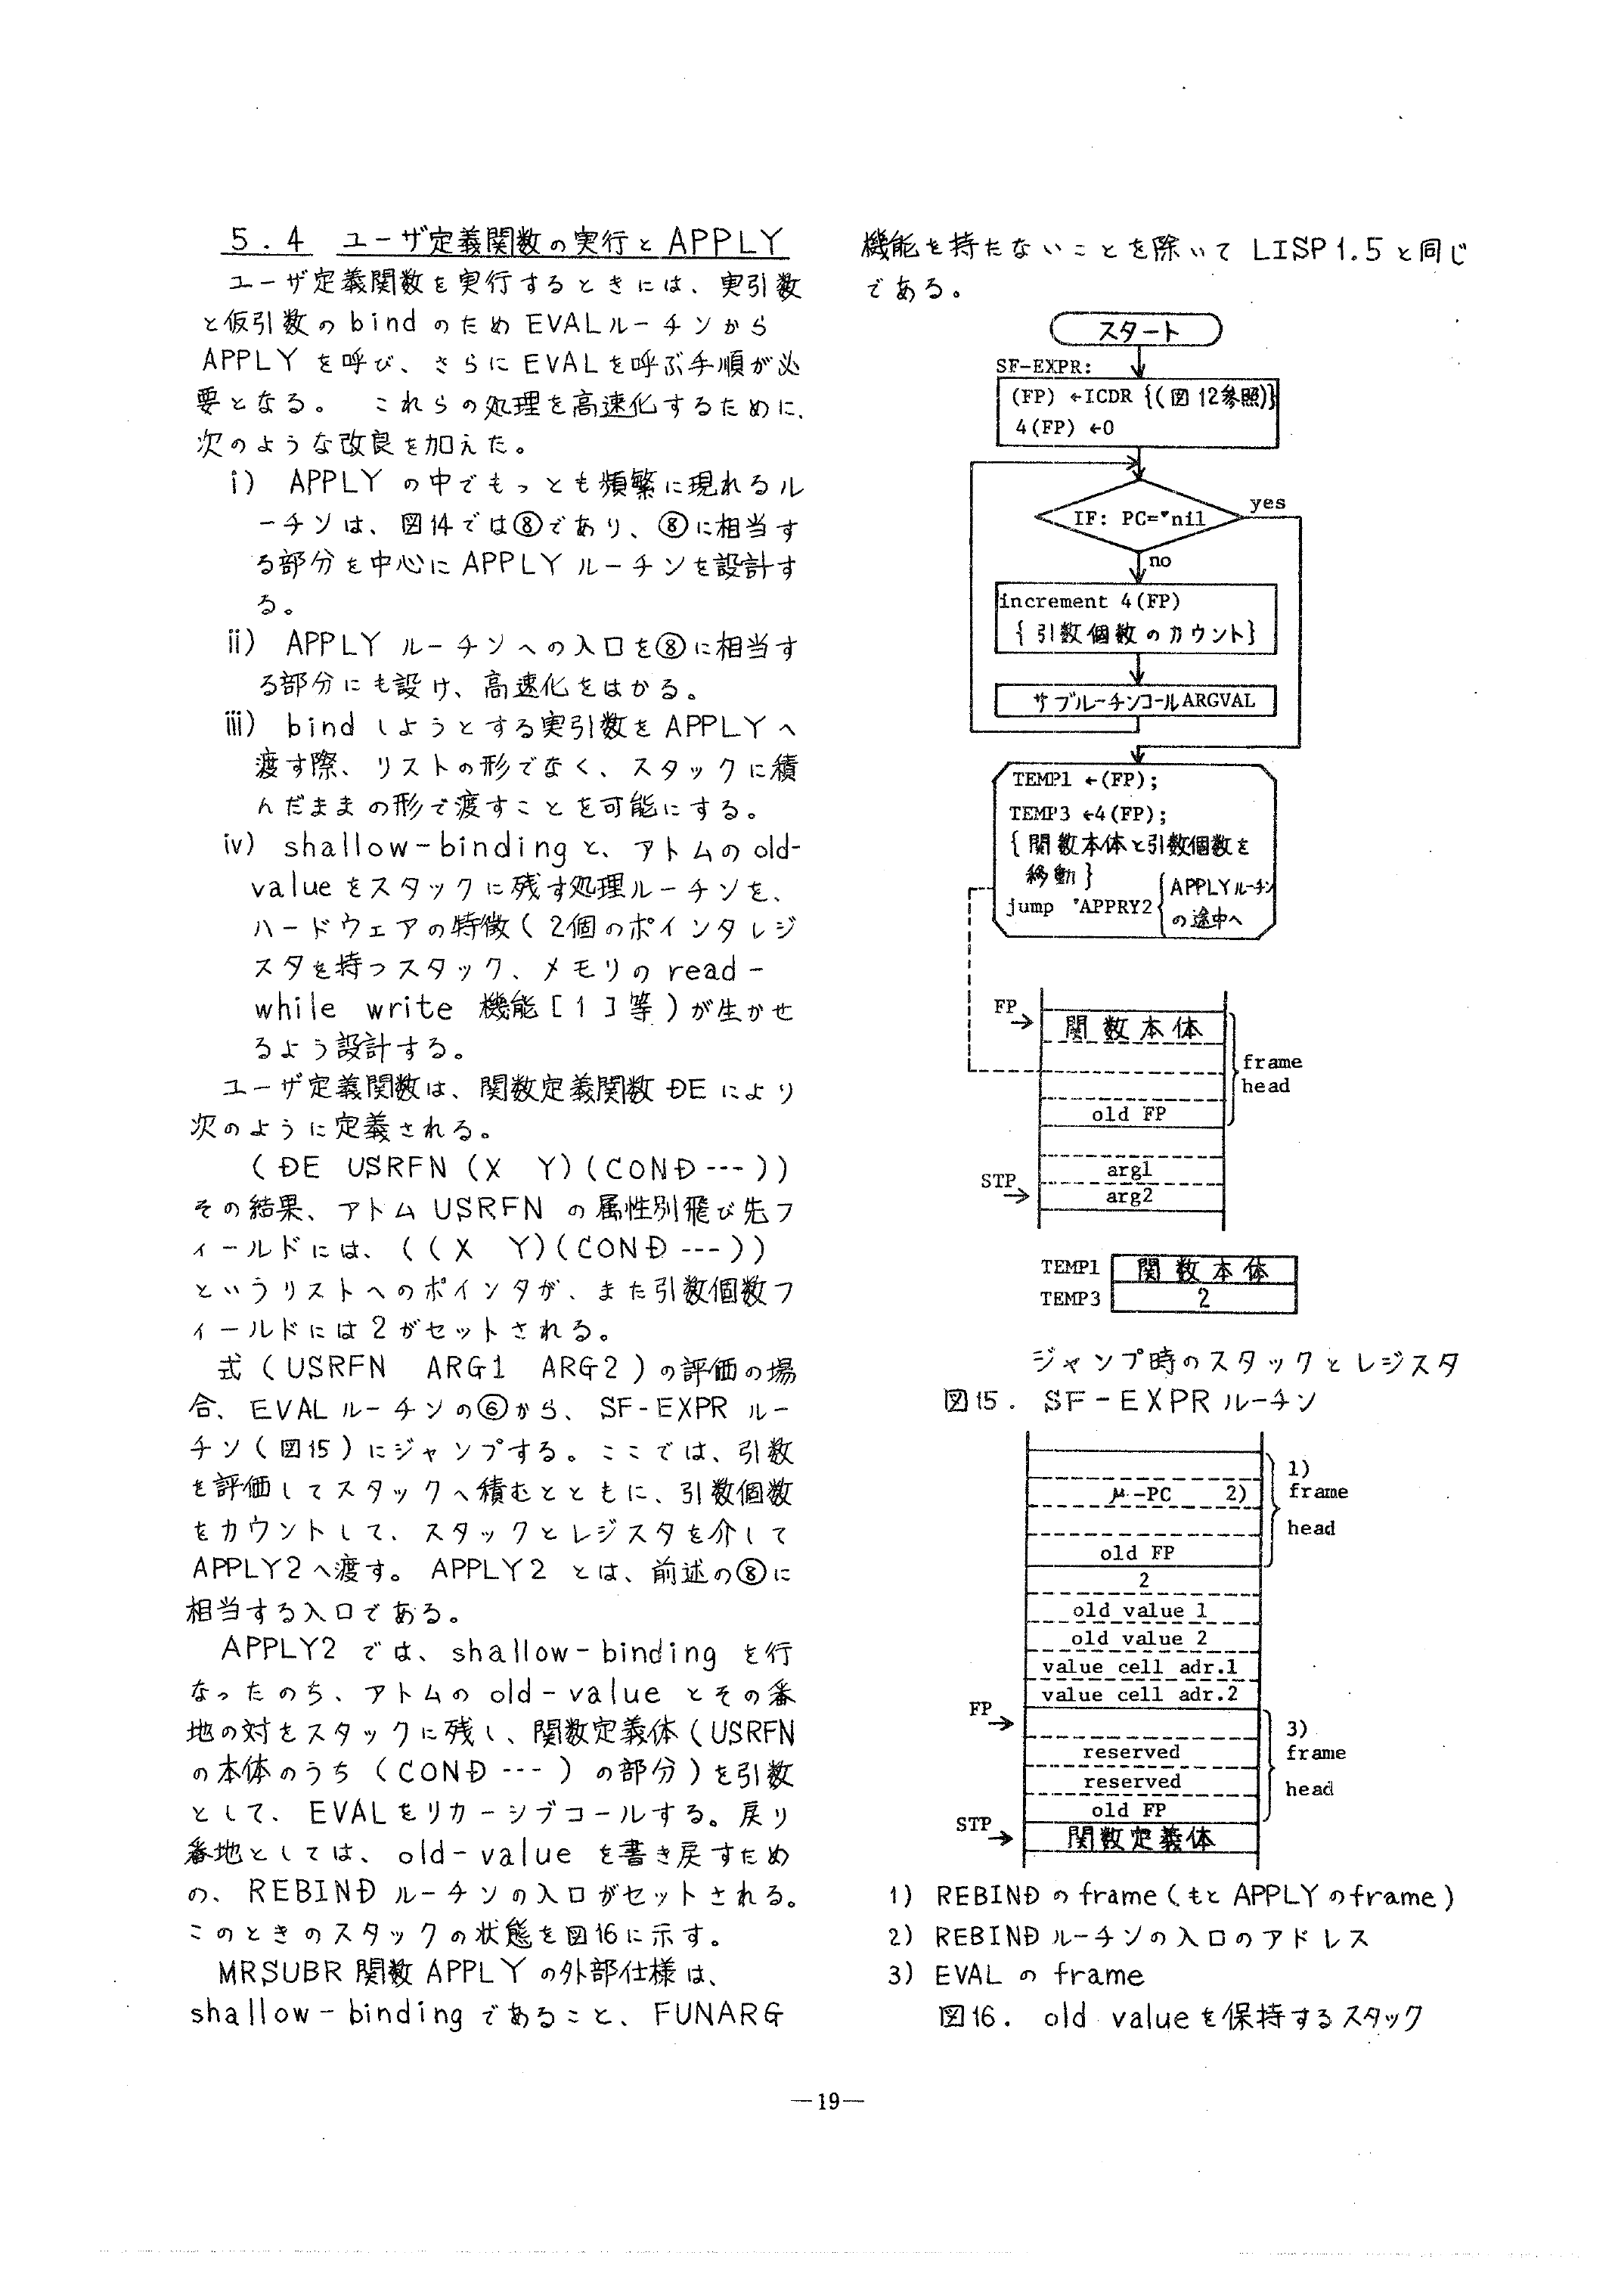 5.4 ユーザ定義関数の実行とAPPLY
ユーザ定義関数を実行するときには、実引数
と仮引数のbindのためEVALルーチンから
APPLYを呼び、さらにEVALを呼ぶ手順が必
要となる。 これらの処理を高速化するために、
次のような改良を加えた。
i) APPLYの中でもっとも頻繁に現れるル
ーチンは、図14では⑧であり、⑧に相当す
る部分を中心にAPPLYルーチンを設計す
る。
ii) APPLYルーチンへの入口を⑧に相当す
る部分にも設け、高速化をはかる。
iii) bindしようとする実引数をAPPLYへ
渡す際、リストの形でなく、スタックに積
んだままの形で渡すことを可能にする。
iv) shallow-bindingと、アトムのold-
valueをスタックに残す処理ルーチンを、
ハードウェアの特徴(2個のポインタレジ
スタを持つスタック、メモリのread-
while write 機能[1]等)が生かせ
るよう設計する。
ユーザ定義関数は、関数定義関数DEにより
次のように定義される。
(DE USRFN (X Y)(COND---))
その結果、アトムUSRFNの属性別飛び先フ
ィールドには、((X Y)(COND---))
というリストへのポインタが、また引数個数フ
ィールドには2がセットされる。
式(USRFN ARG1 ARG2)の評価の場
合、EVALルーチンの⑥から、SF-EXPRルー
チン(図15)にジャンプする。ここでは、引数
を評価してスタックへ積むとともに、引数個数
をカウントして、スタックとレジスタを介して
APPLY2へ渡す。APPLY2とは、前述の⑧に
相当する入口である。
APPLY2では、shallow-bindingを行
なったのち、アトムのold-valueとその番
地の対をスタックに残し、関数定義体(USRFN
の本体のうち(COND---)の部分)を引数
として、EVALをリカーシブコールする。戻り
番地としては、old-valueを書き戻すため
の、REBINDルーチンの入口がセットされる。
このときのスタックの状態を図16に示す。
MRSUBR関数APPLYの外部仕様は、
shallow-bindingであること、FUNARG
機能を持たないことを除いてLISP1.5と同じ
である。
スタート
SF-EXPR:
(FP) ←ICDR {(図12参照)}
4(FP) ←0
IF: PC='nil
yes
no
increment 4(FP)
{引数個数のカウント}
サブルーチンコールARGVAL
TEMP1 ←(FP);
TEMP3 ←4(FP);
{関数本体と引数個数を
移動}
jump 'APPRY2 {APPLYルーチン
の途中へ
FP→
関数本体
frame
head
old FP
arg1
STP→
arg2
TEMP1 関数本体
TEMP3 2
ジャンプ時のスタックとレジスタ
図15. SF-EXPRルーチン
1)
μ-PC 2)
frame
head
old FP
2
old value 1
old value 2
value cell adr.1
value cell adr.2
FP→
3)
reserved
frame
reserved
head
old FP
STP→
関数定義体
1) REBINDのframe(もとAPPLYのframe)
2) REBINDルーチンの入口のアドレス
3) EVALのframe
図16. old valueを保持するスタック
—19—